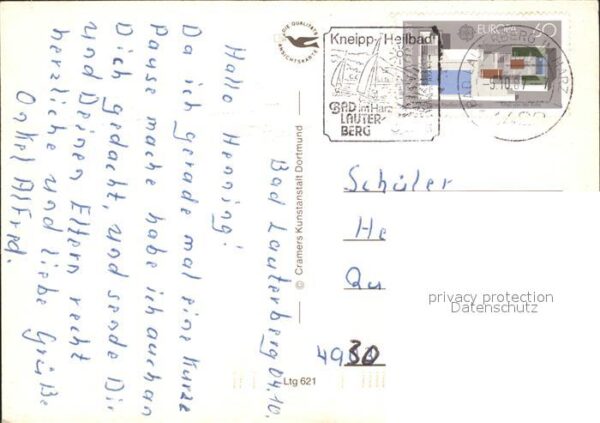 Bad Lauterberg 04.10.
Hallo Henning!
Da ich gerade mal eine Kurze
Pause mache habe ich auch an
Dich gedacht, und sende Dir
und Deinen Eltern recht
herzliche und liebe Grüße
Onkel Alfred.
DIE QUALITÄTS
ANSICHTSKARTE
© Cramers Kunstanstalt Dortmund
Ltg 621
Kneipp-Heilbad
BAD im Harz
LAUTER-
BERG
EUROPA 60
Schüler
He
Qu
privacy protection
Datenschutz